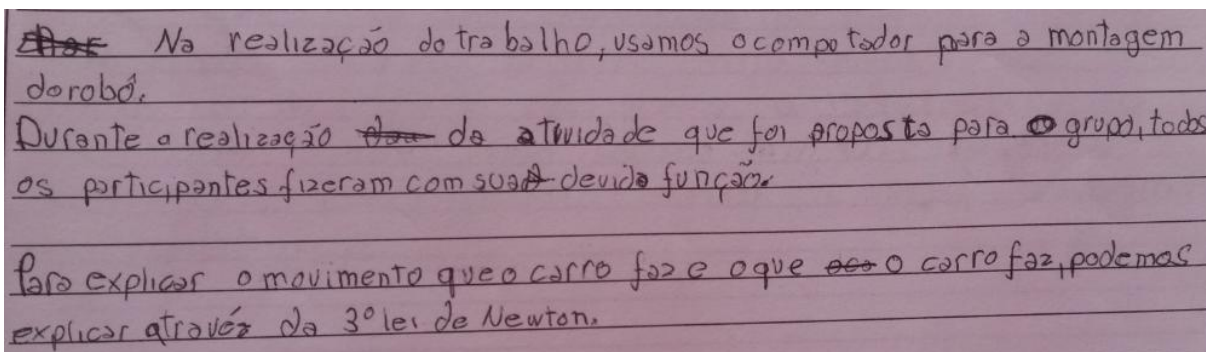 Na realização do trabalho, usamos o compotador para a montagem
do robô.
Durante a realização da atividade que foi proposta para o grupo, todos
os participantes fizeram com sua devida função.
Para explicar o movimento que o carro faz e o que o carro faz, podemos
explicar através da 3º lei de Newton.